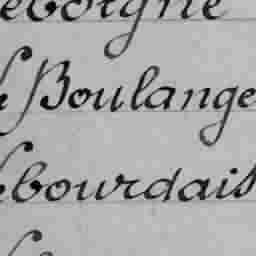 eborgne
e Boulange
ebourdais